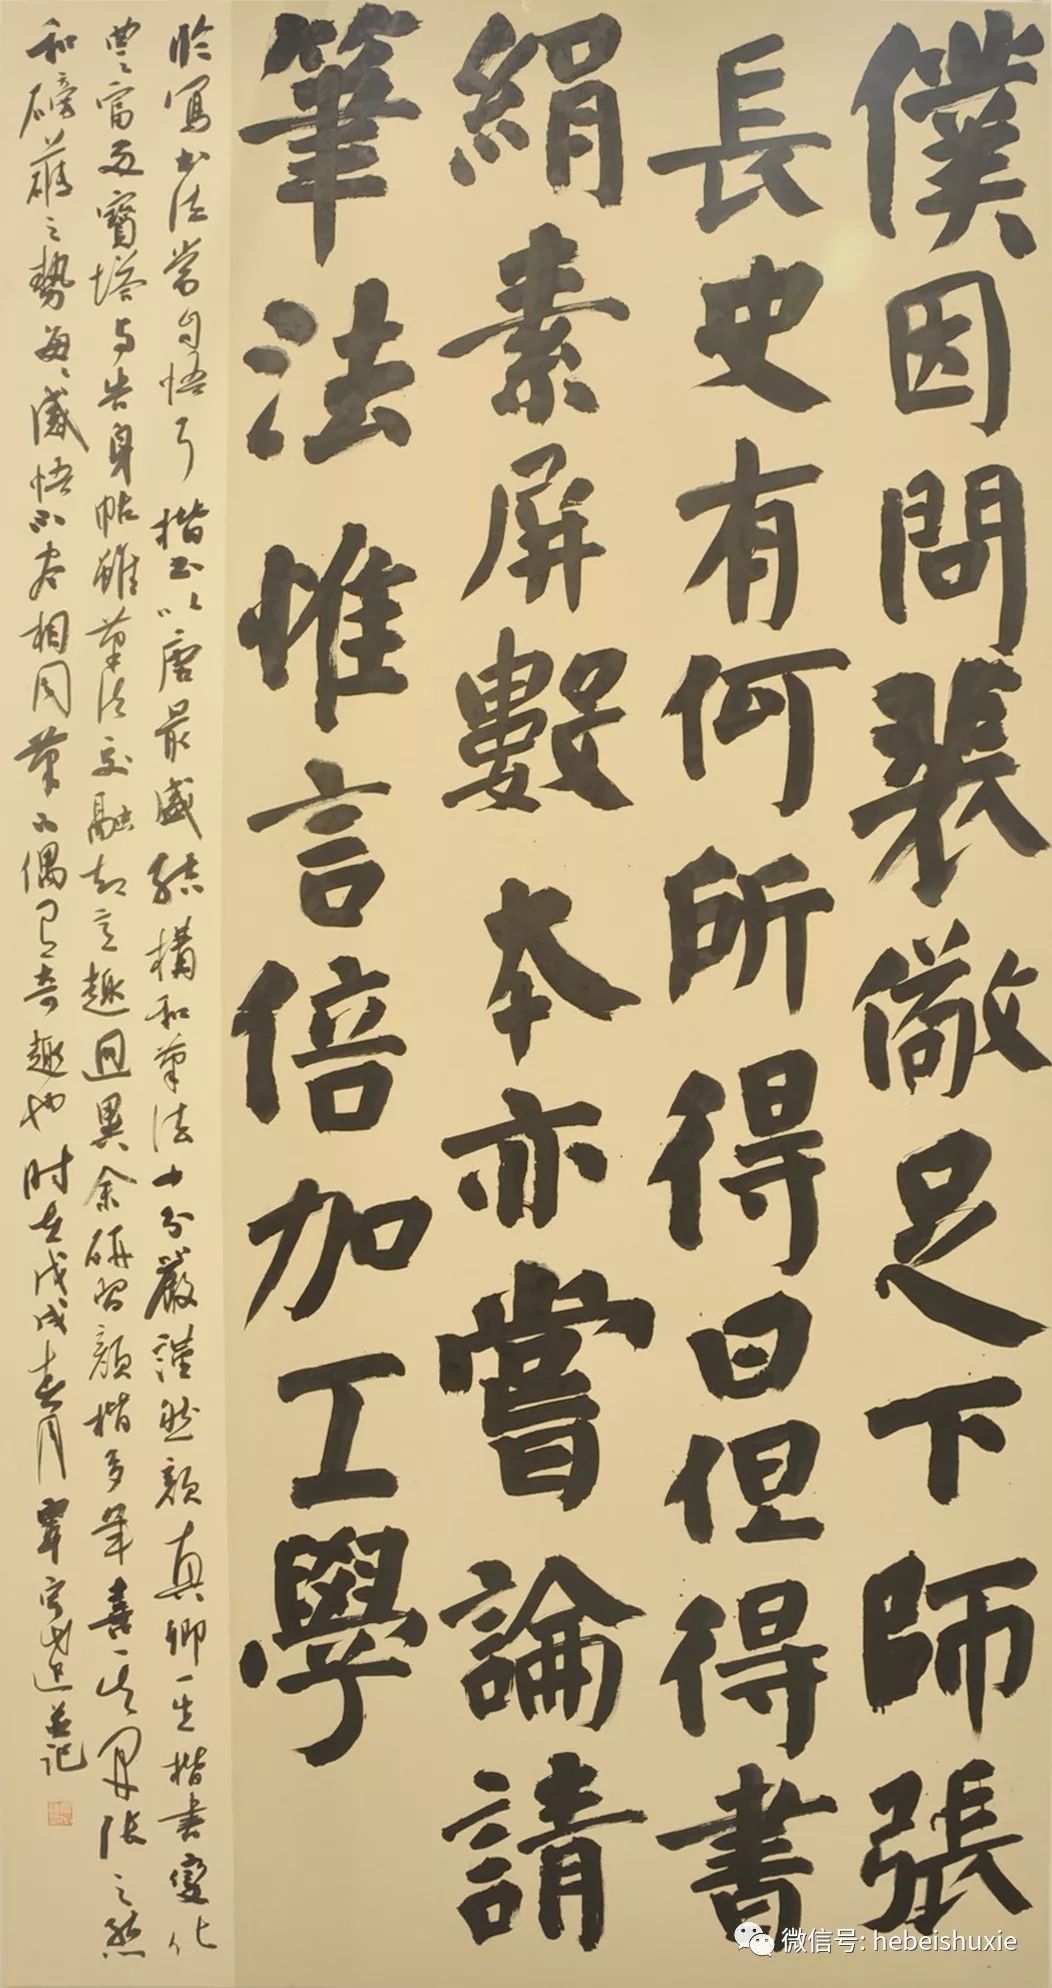 僕因問裴儆足下師張
長史有何所得曰但得書
絹素屏數本亦嘗論請
筆法惟言倍加工學
寫書法常自悟 楷書以唐最盛結構和筆法十分嚴謹然顏真卿一生楷書變化
豐富多寶塔與告身帖雖筆法交融却意趣迥異余研習顏楷多年喜其開張之態
和磅礴之勢每每感悟不盡相同筆下偶見奇趣也時在戊戌春月 並記
微信号: hebeishuxie